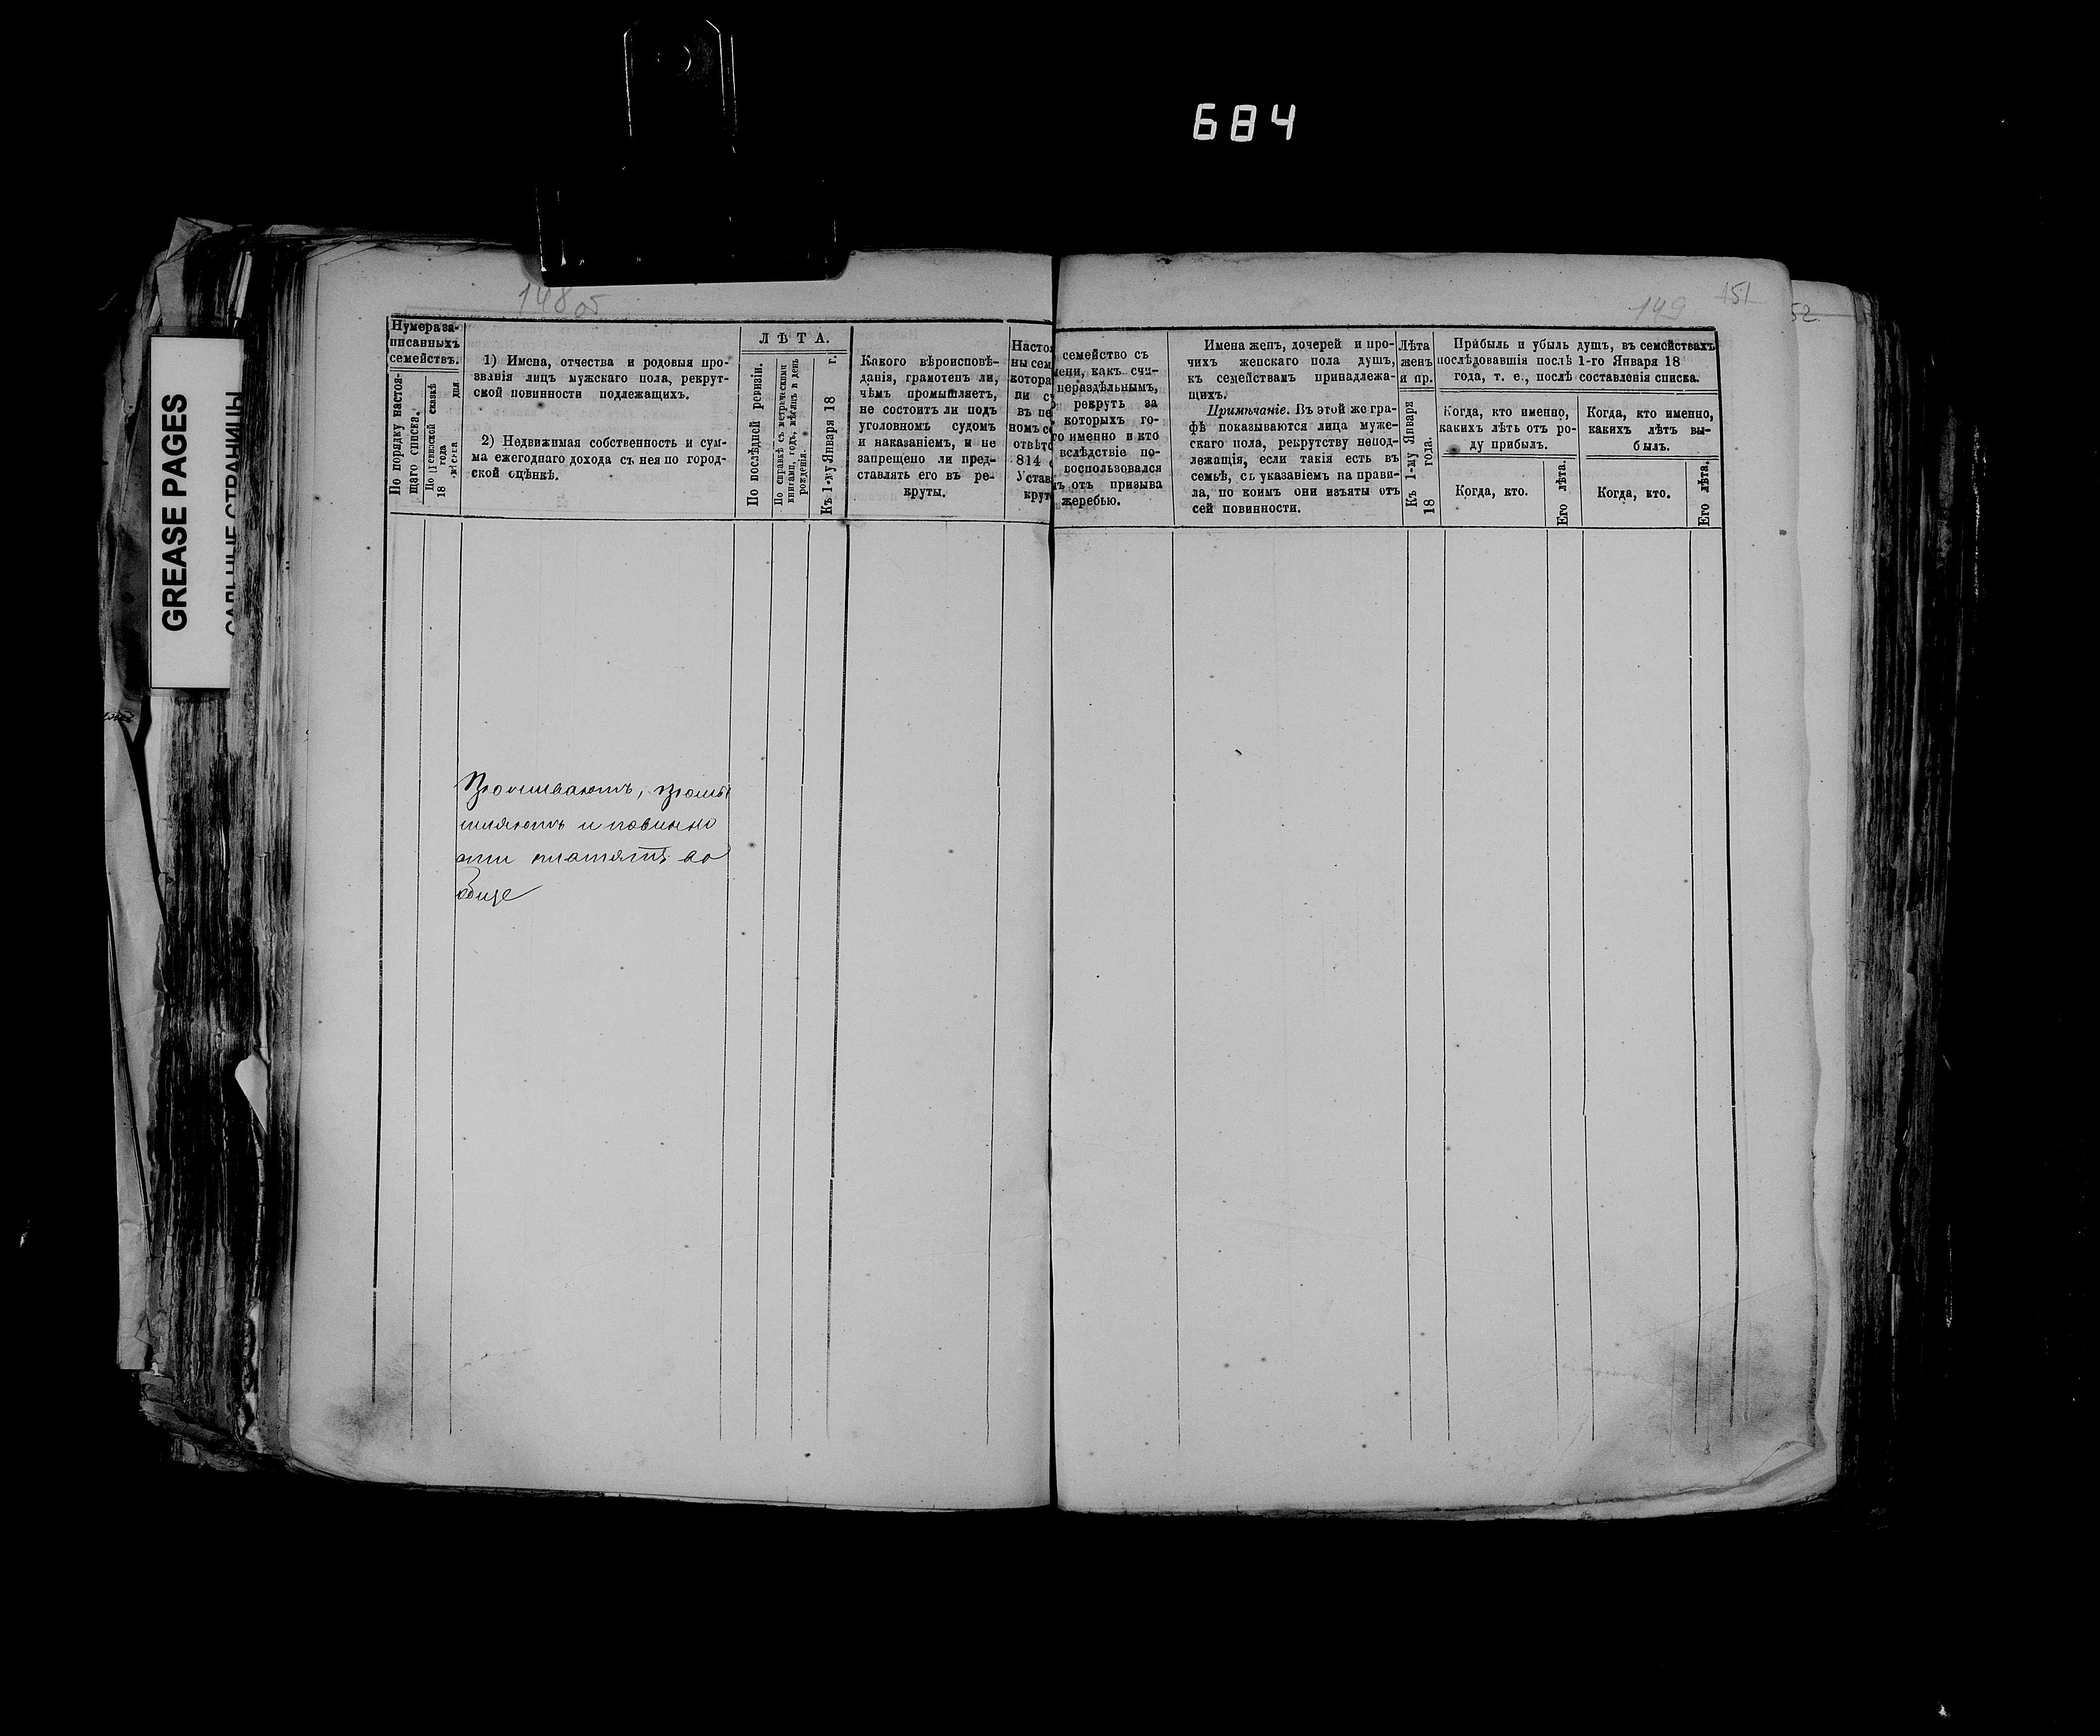 684
GREASE PAGES
САЛЬНЫЕ СТРАНИЦЫ
148 об
149
151
52
Нумера за-
писанныхъ
семействъ.
По порядку настоя-
щаго списка.
По ревизской сказкѣ
18 года
мѣсяца дня
1) Имена, отчества и родовыя про-
званія лицъ мужскаго пола, рекрут-
ской повинности подлежащихъ.
2) Недвижимая собственность и сум-
ма ежегоднаго дохода съ нея по город-
ской оцѣнкѣ.
ЛѢТА.
По послѣдней ревизіи.
По справкѣ съ метрическими
книгами, годъ, мѣсяцъ и день
рожденія.
Къ 1-му Января 18 г.
Какого вѣроисповѣ-
данія, грамотенъ ли,
чѣмъ промышляетъ,
не состоитъ ли подъ
уголовномъ судомъ
и наказаніемъ, и не
запрещено ли пред-
ставлять его въ ре-
круты.
Настоя
ны сем
котора
ли сч
въ пе
номъ се
отвѣтс
814 с
Устав
крут
семейство съ
мени, какъ счи-
нераздѣльнымъ,
рекрутъ за
которыхъ го-
го именно и кто
вслѣдствіе по-
воспользовался
ъ отъ призыва
жеребью.
Имена женъ, дочерей и про-
чихъ женскаго пола душъ,
къ семействамъ принадлежа-
щихъ.
Примѣчаніе. Въ этой же гра-
фѣ показываются лица муже-
скаго пола, рекрутству непод-
лежащія, если такія есть въ
семьѣ, съ указаніемъ на прави-
ла, по коимъ они изъяты отъ
сей повинности.
Лѣта
женъ
и пр.
Къ 1-му Января
18 года.
Прибыль и убыль душъ, въ семействахъ
послѣдовавшія послѣ 1-го Января 18
года, т. е., послѣ составленія списка.
Когда, кто именно,
какихъ лѣтъ отъ ро-
ду прибылъ.
Когда, кто.
Его лѣта.
Когда, кто именно,
какихъ лѣтъ вы-
былъ.
Когда, кто.
Его лѣта.
Проживаютъ, промы
шляютъ и повинно
сти платятъ во
обще